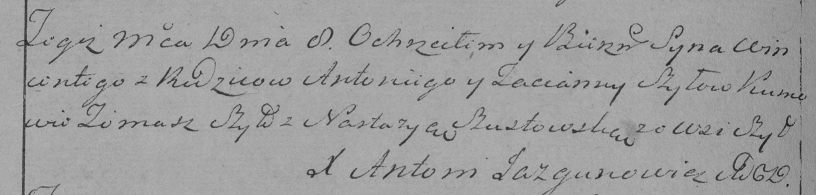 Tegiż Mca Dnia 8. Ochrzciłem y Birzm Syna Win
centego z Rodzicow Antoniego y Tacianny Szyłow Kumo
wie Tomasz Szył z Nastazyą Szustowską ze wsi Szył
X Antoni Jazgunowicz